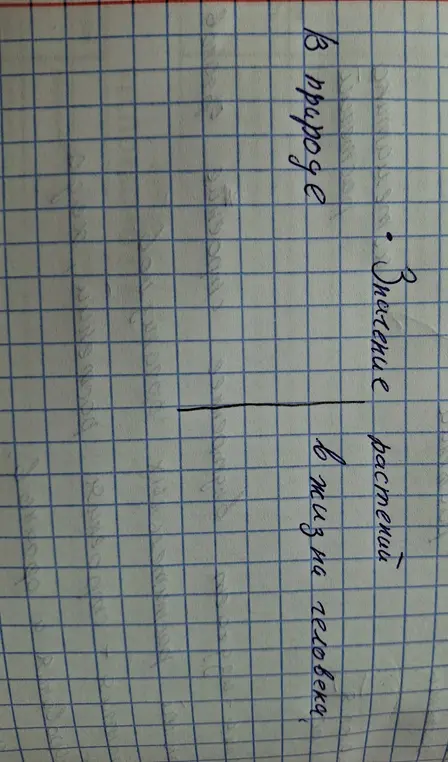 • Значение растений
В природе
в жизна человека